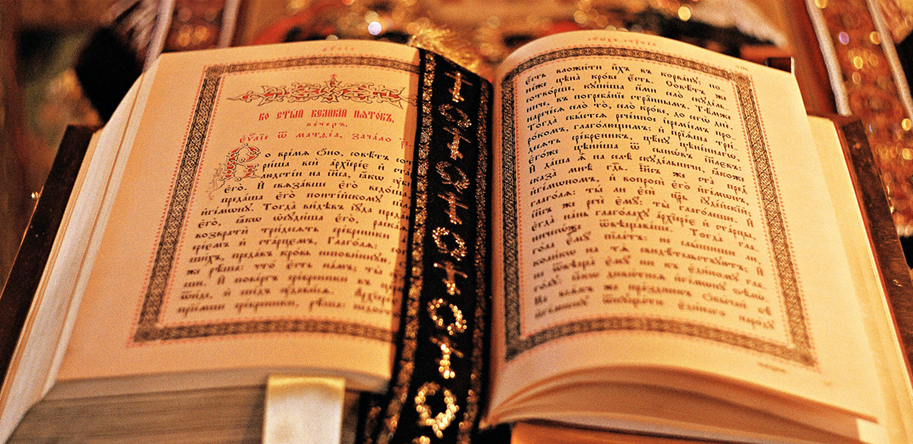 Во ст҃ый великїй пѧтокъ,
вечеръ.
Еѵⷢ҇лїе ѿ матѳеа, зачало
Во времѧ ѻно, совѣтъ сот
рїиша вси архїерее и ста
людстїи на іи҃са, ꙗкѡ ᲂу҆бı
его. И свѧзавше его ведоша
предаша его понтїйскомꙋ
игемѡнꙋ. Тогда видѣвъ іꙋда преда
его, ꙗкѡ ѡсꙋдиша его, раска
возврати тридесѧть сребрени
ерѡмъ и старцемъ, глаголѧ: со
шихъ, предавъ кровь неповиннꙋю.
же рѣша: что есть намъ; ты
ши. И повергъ сребреники въ ц
ѿиде, и шедъ ᲂу҆дависѧ. Архїере
прїемше сребреники, рѣша: недо
есть вложити ихъ въ корванꙋ: по
неже цѣна крове есть. Совѣтъ же
сотворше, кꙋпиша ими село скꙋдель
ниче, въ погребанїе страннымъ. Тѣмже
наречесѧ село то, село крове, до сегѡ дне.
Тогда сбыстсѧ реченное їеремїемъ про
рокомъ, глаголющимъ: и прїѧша три
десѧть сребреникъ, цѣнꙋ цѣненнагѡ,
егоже цѣниша ѿ сынѡвъ іи҃левъ:
И даша ѧ на село скꙋдельниче, ꙗкоже
сказа мнѣ гд҇ь. Іи҃съ же ста пред
игемономъ, и вопроси его игемѡнъ
глаголѧ: ты ли еси цр҃ь їꙋдейскїй;
Іи҃съ же рече емꙋ: ты глаголеши. И
егда нань глаголахꙋ архїерее и старцы,
ничесѡже ѿвѣщаваше. Тогда гла
гола емꙋ пїлатъ: не слышиши ли,
колика на тѧ свидѣтельствꙋютъ; И
не ѿвѣща емꙋ ни къ единомꙋ гла
голꙋ, ꙗкѡ дивитисѧ игемонꙋ ѕѣлѡ.
На всѧкъ же праздникъ ѡбычай бѣ
игемонꙋ ѿпꙋщати единаго народꙋ